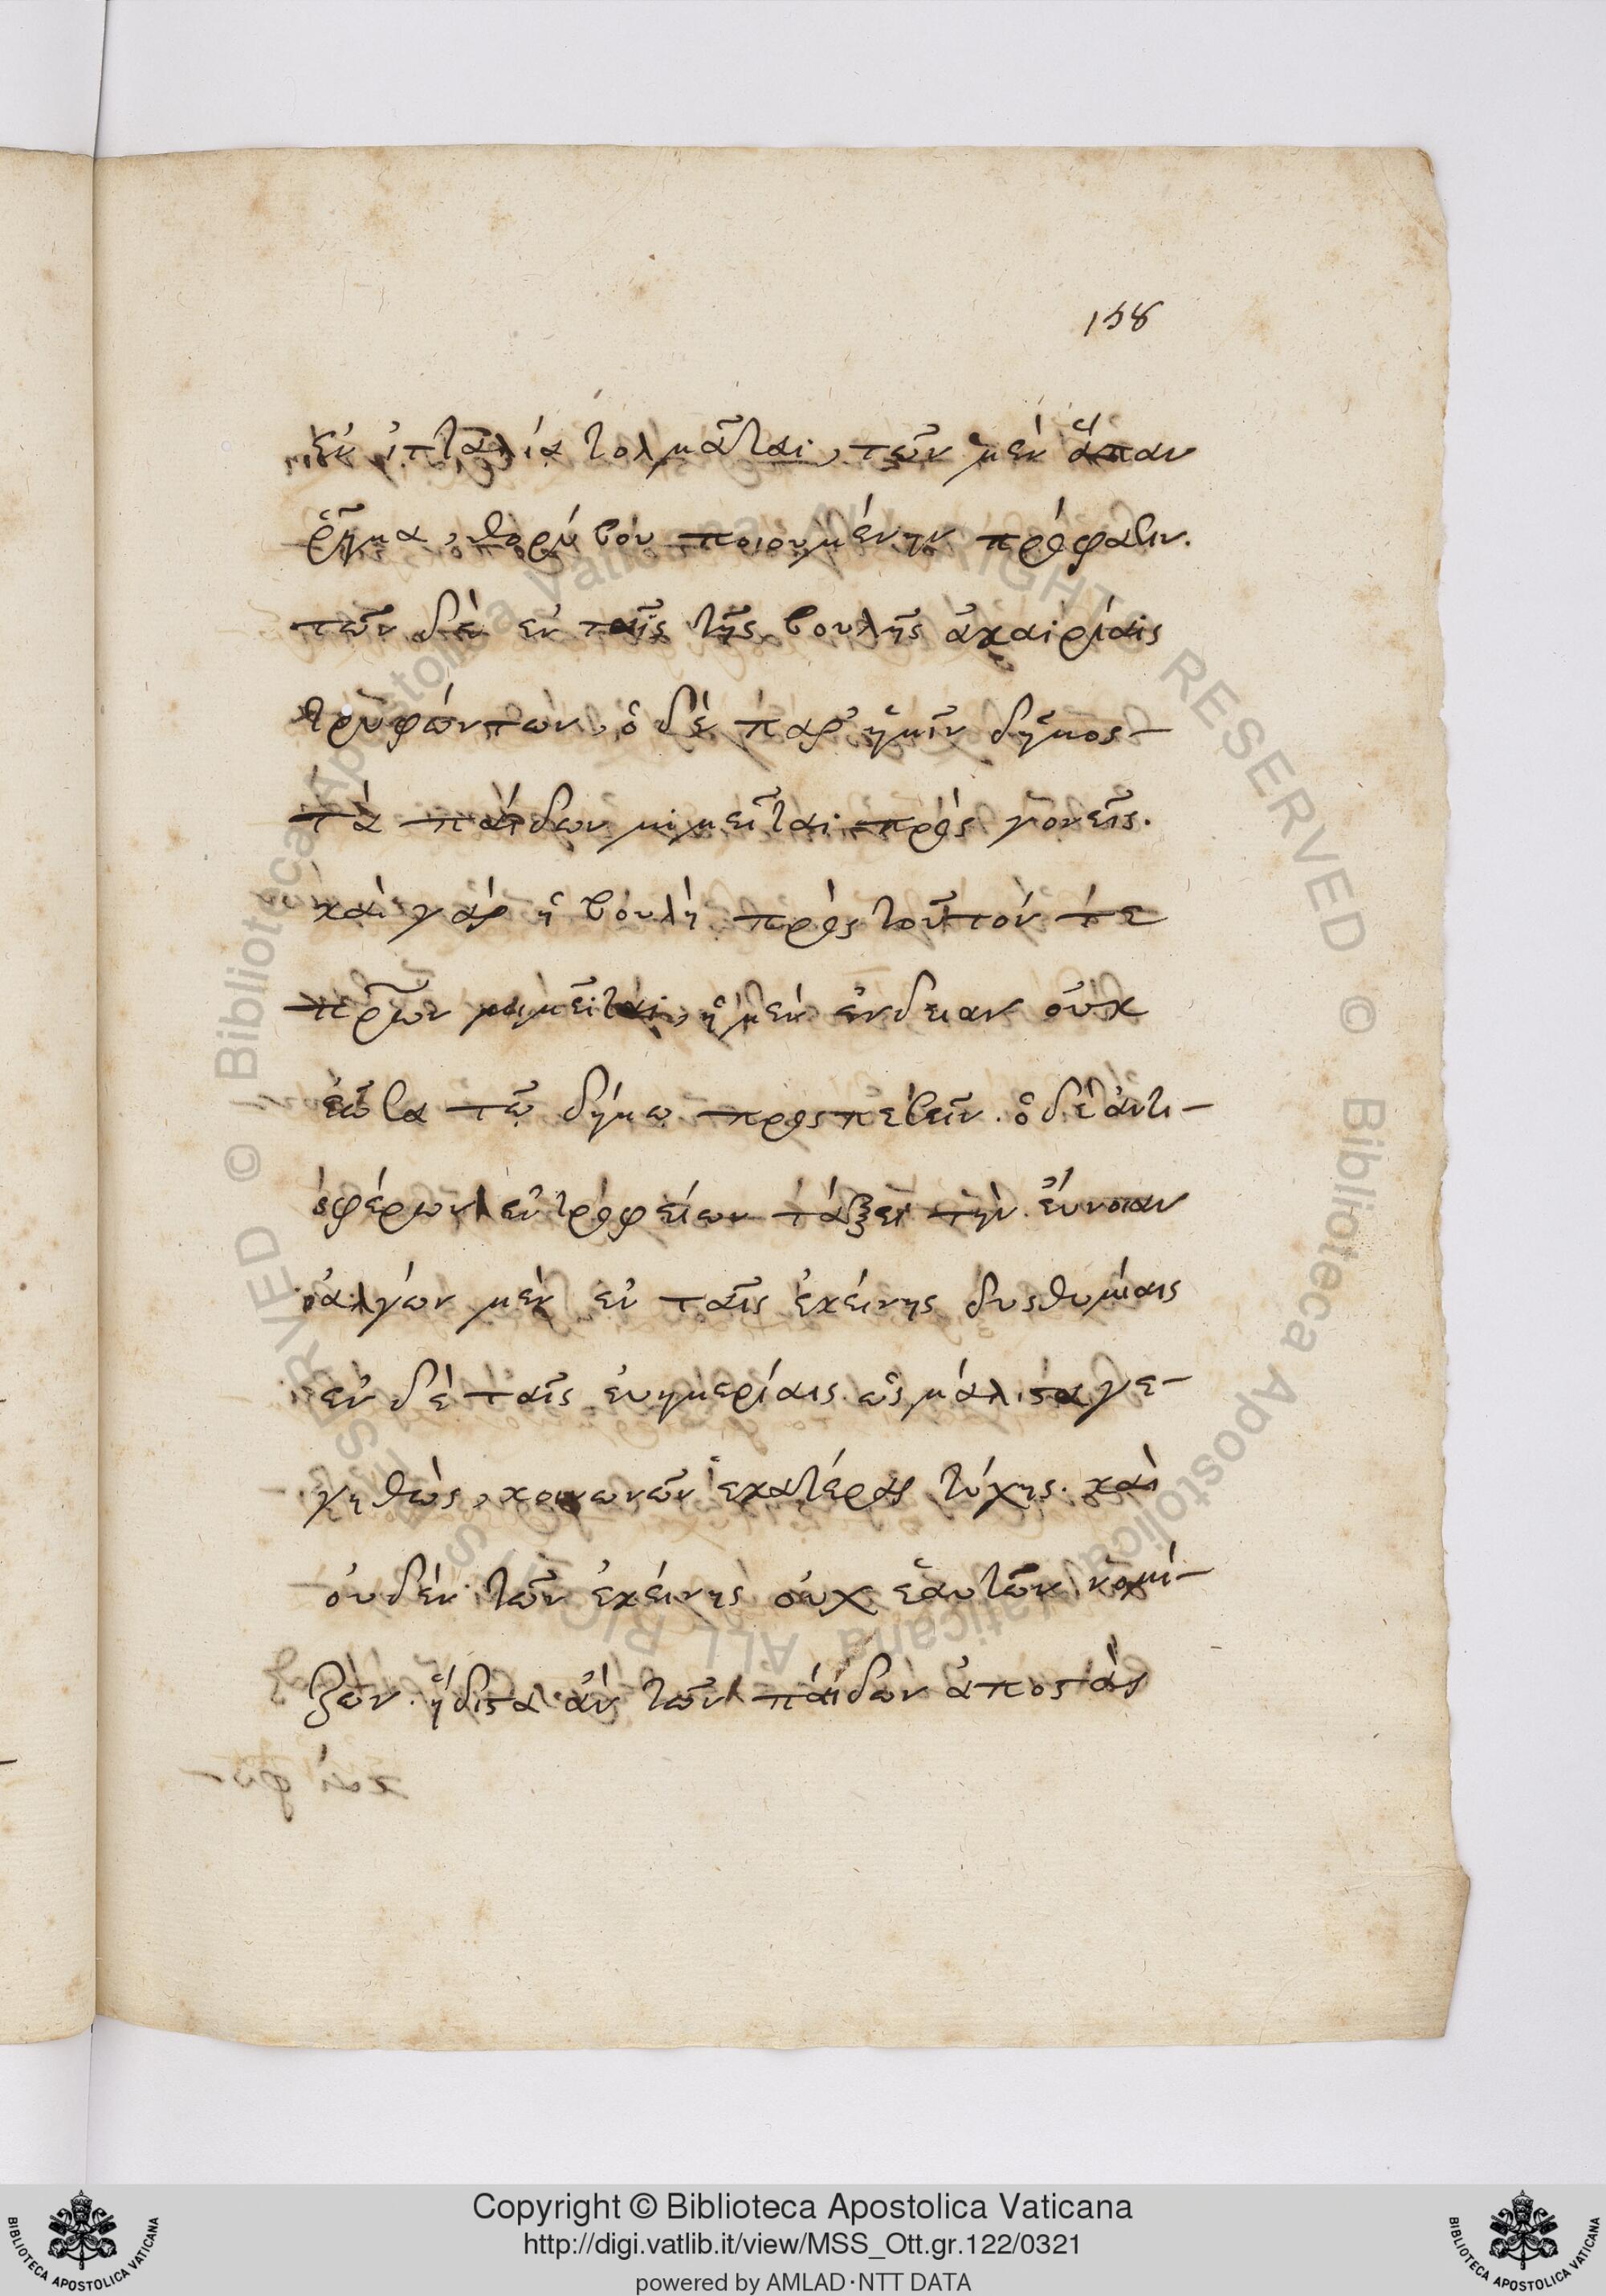 158
ἐν ἰταλία τολμᾶται, τῶν μὲν ἅπαν
ῥῆμα, θορύβου ποιουμένων πρόφασιν.
τῶν δὲ ἐν ταῖς τῆς βουλῆς ἀκαιρίαις
τρυφώντων, ὁ δὲ παρ' ἡμῖν δῆμος
τὰ παίδων μιμεῖται πρὸς γονεῖς.
καὶ γὰρ ἡ βουλὴ πρὸς τοῦτον
μιμεῖται, ἡ μὲν ἔνδειαν οὐκ
ἐῶσα τῷ δήμῳ προσπεσεῖν. ὁ δὲ ἀντι-
σφέρων ἐν τροφείων τάξει τὴν εὔνοιαν
ἀλγῶν μὲν ἐν ταῖς ἐκείνης δυσθυμίαις
ἐν δὲ ταῖς εὐημερίαις ὡς μάλιστα γε-
γηθὼς, κοινωνῶν ἑκατέρας τύχης. καὶ
οὐδὲν τῶν ἐκείνης οὐχ ἑαυτῶν νομί-
ζων. ἥδιστα ἂν τῶν παίδων ἀποστὰς
Copyright © Biblioteca Apostolica Vaticana
http://digi.vatlib.it/view/MSS_Ott.gr.122/0321
powered by AMLAD·NTT DATA
BIBLIOTECA APOSTOLICA VATICANA
BIBLIOTECA APOSTOLICA VATICANA
© Biblioteca Apostolica Vaticana ALL RIGHTS RESERVED
© Biblioteca Apostolica Vaticana ALL RIGHTS RESERVED